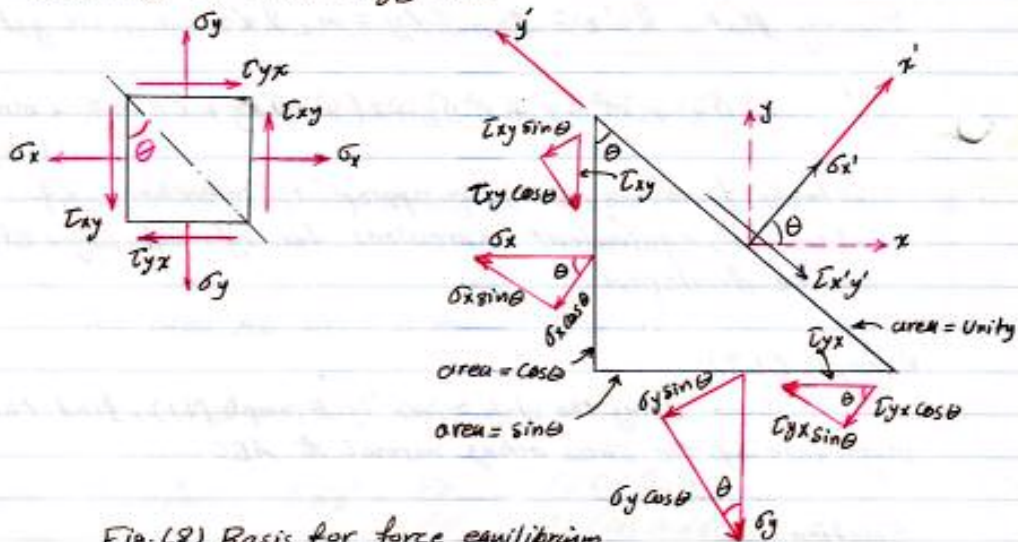 σy
τyx
τxy
θ
σx
σx
τxy
τyx
σy
y'
x'
y
τxy sinθ
θ
τxy
τxy cosθ
σx'
θ
x
σx
θ
σx sinθ
σx cosθ
τx'y'
area = Unity
τyx
area = cosθ
area = sinθ
σy sinθ
θ
τyx cosθ
τyx sinθ
σy cosθ
θ
σy
Fig.(8) Basis for force equilibrium